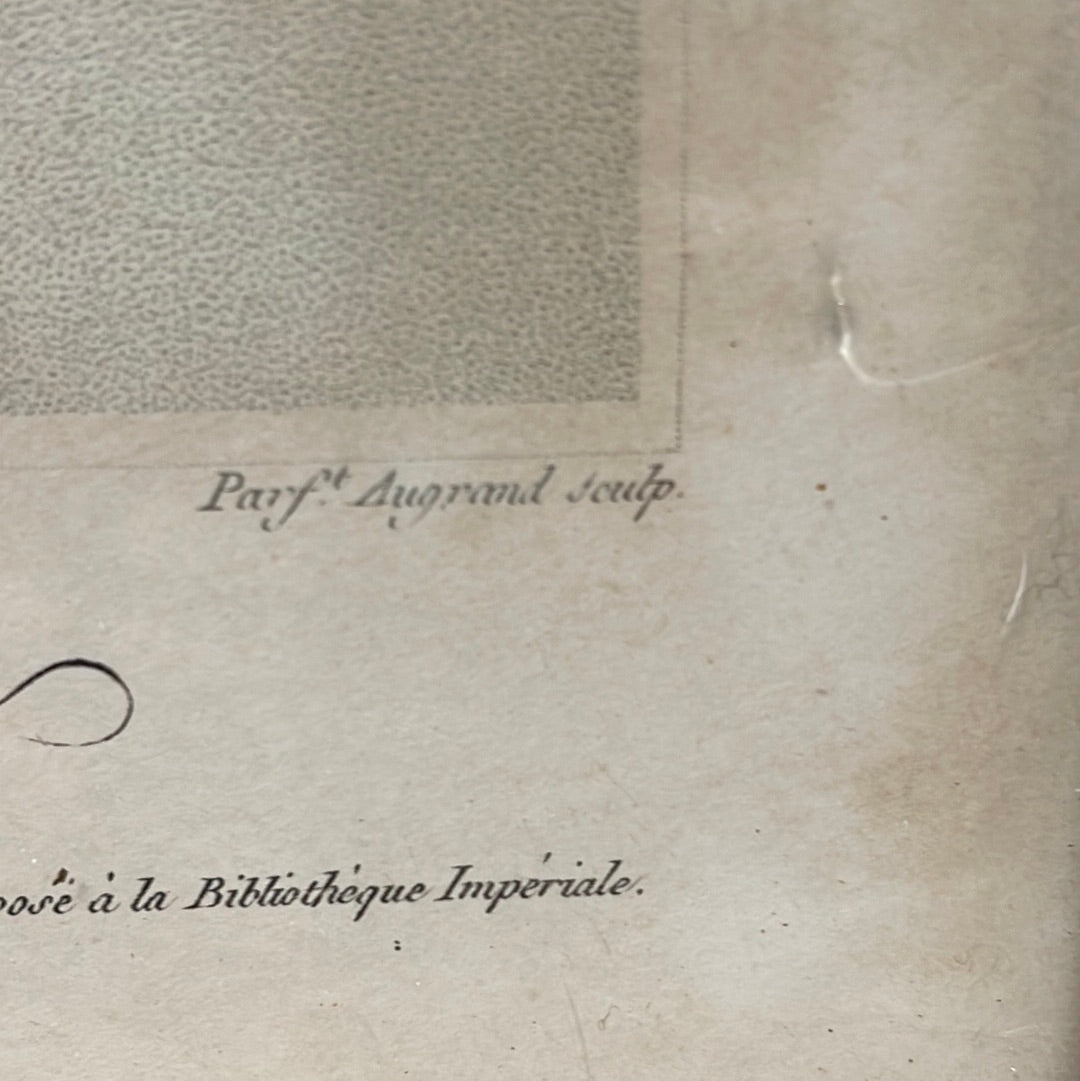 Parf.t Augrand sculp.
posé à la Bibliothéque Impériale.